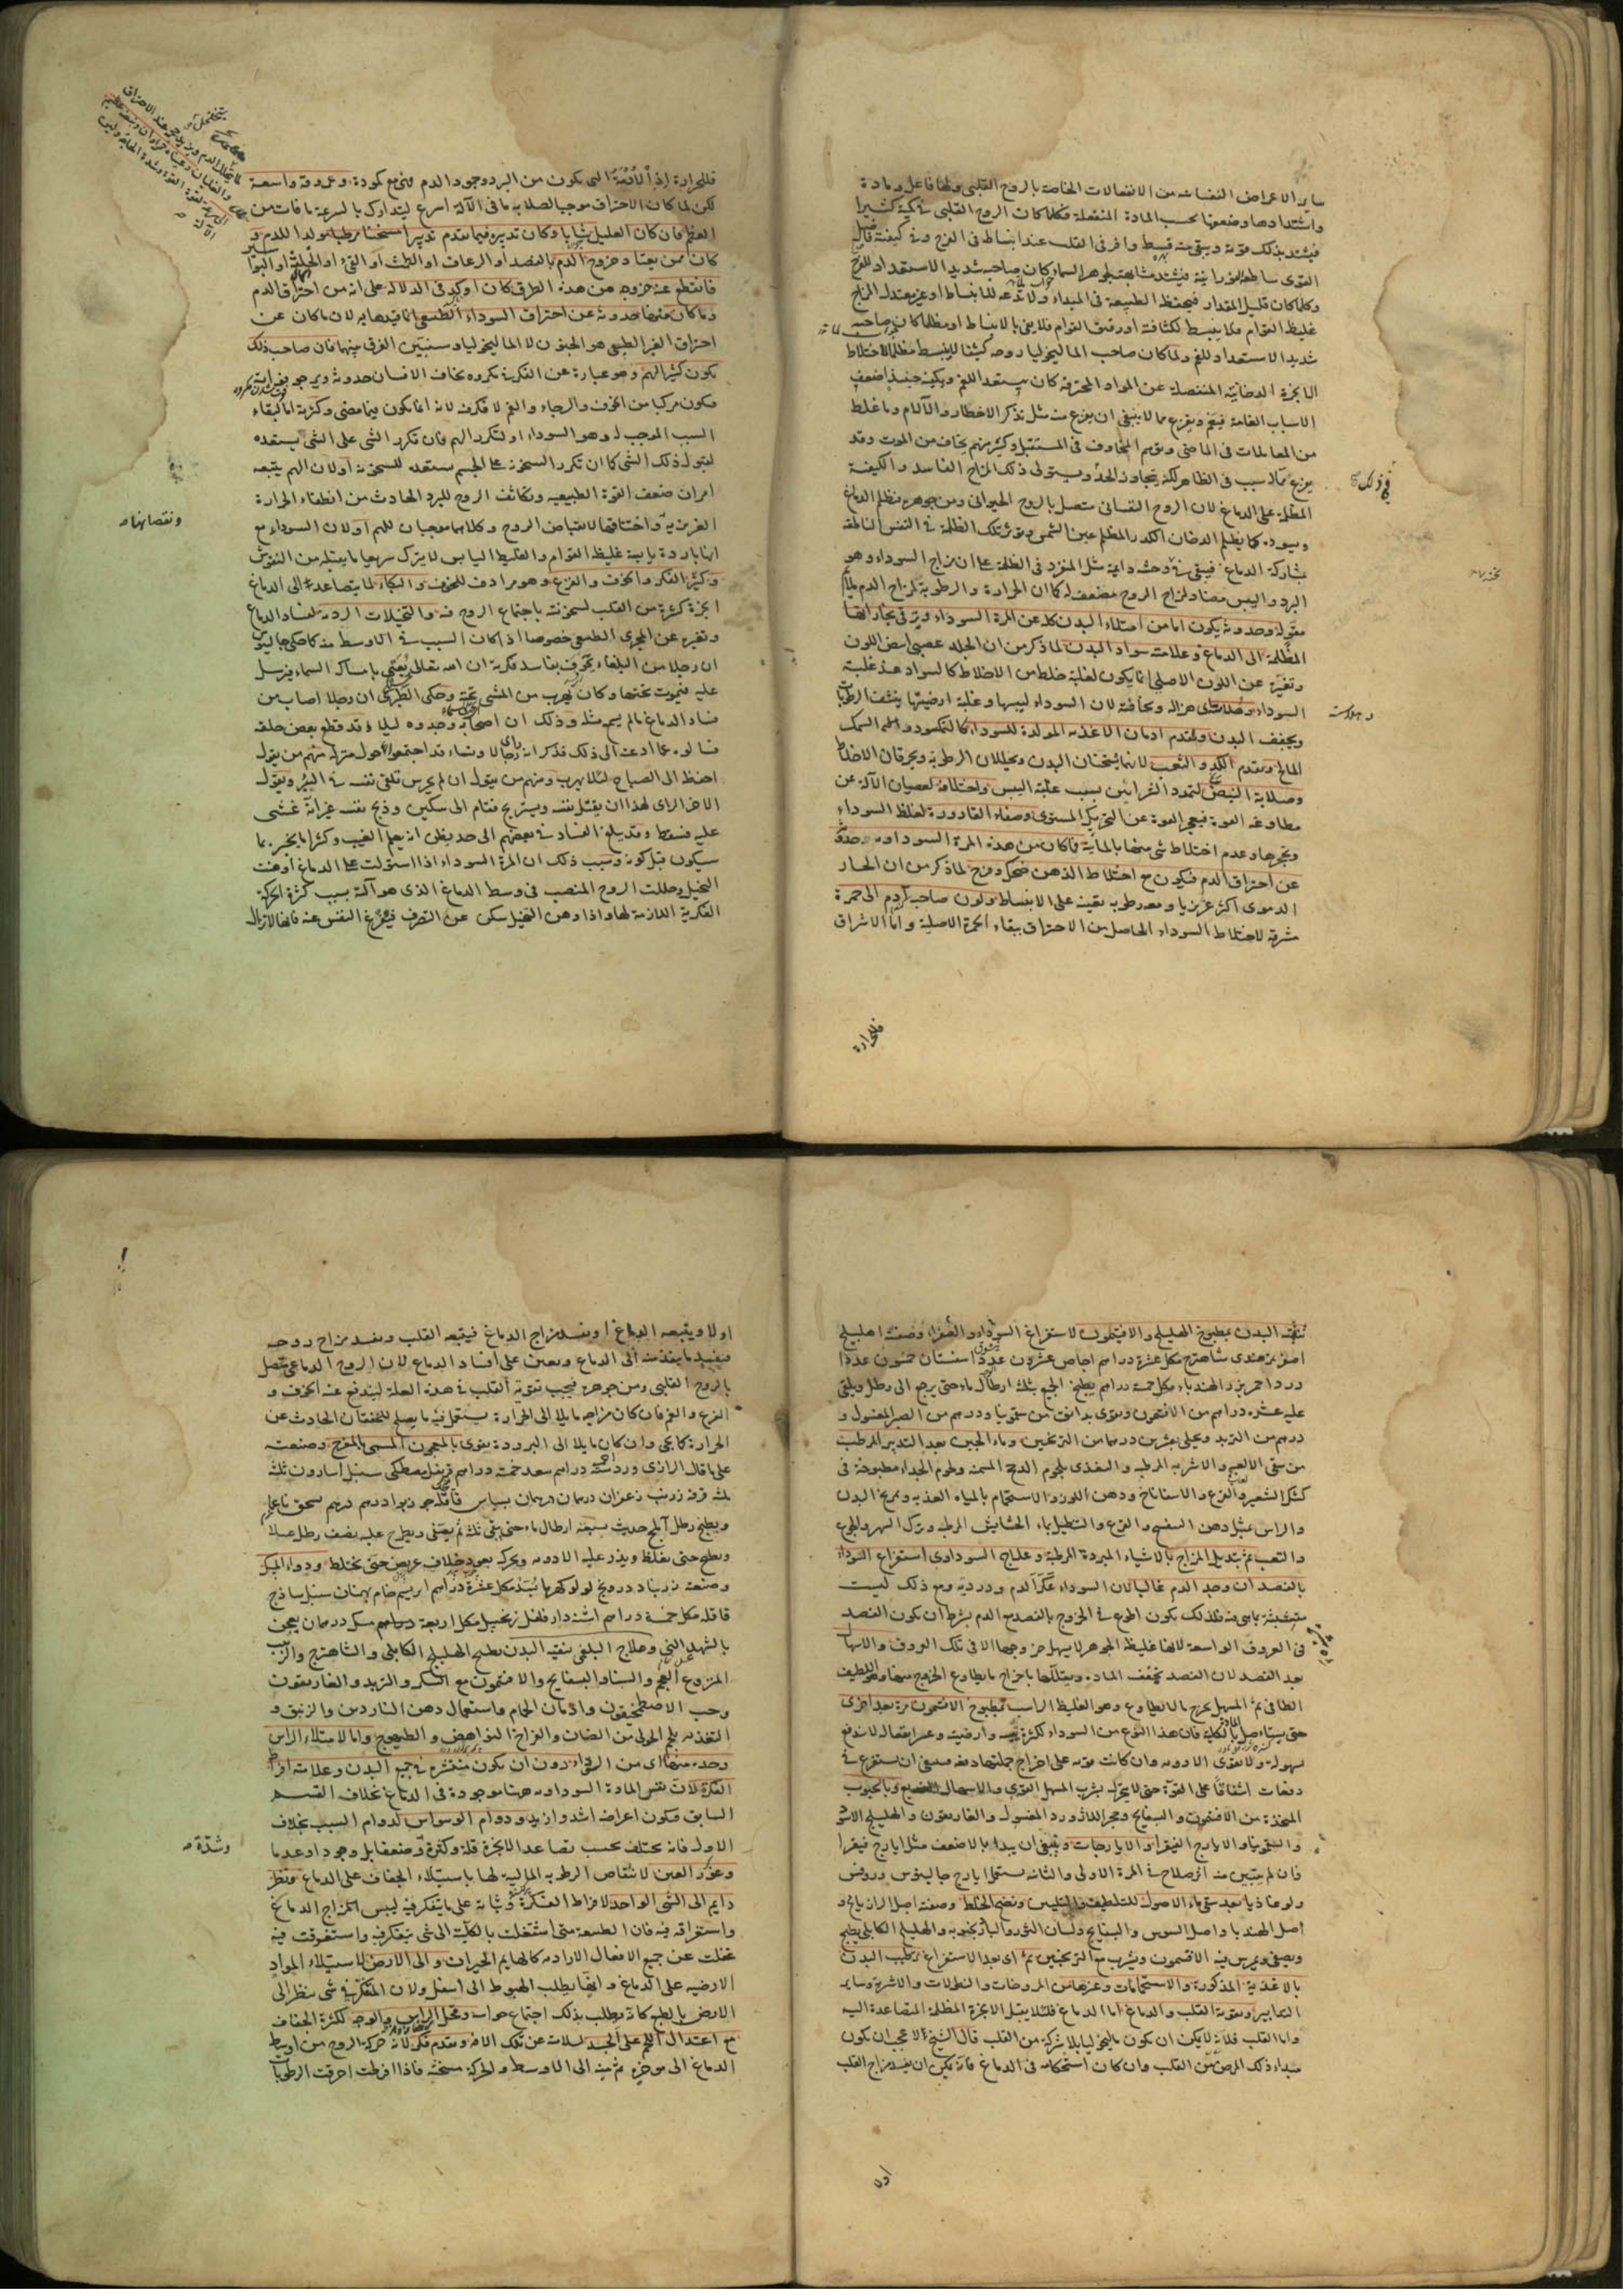 ساير الاعراض النفسانيه من الانفعالات الخاصة بالروح القلبى ولها فاعل ومادة
واشتدادها وضعفها بحسب المادة المنفعلة فكلما كان الروح القلبى فى كمية كثيرا
فيشتد بذلك قوته ويبقى منه قسط وافر فى القلب عند انبساط فى الفرح وفى كيفية
القوى ساطعا نورانية فيشتد مشابهته لجوهر السماء كان صاحبه شديد الاستعداد للفرح
وكلما كان قليل المقدار فيحفظ الطبيعة فى المبداء ولا تدعه للانبساط او غير معتدل المزاج
غليظ القوام فلا ينبسط لكثافته او رقيق القوام فلا يفى بالانبساط او مظلما كان صاحبه
شديد الاستعداد للغم ولما كان صاحب الماليخوليا روحه كثيفا لا ينبسط مظلما لاختلاط
الابخرة الدخانية المنفصلة عن المواد المحترقة كان يستعد للغم ويكفيه حينئذ اضعف
الاسباب الغامة فيغم ويفزع مما لا ينبغى ان يفزع منه مثل تذكر الاخطار والآلام وما غلط
من المعاملات فى الماضى وتوهم المخاوف فى المستقبل وكثير منهم يخاف من الموت وقد
يفزع بلا سبب فى الظاهر لكنه يتجاوز الحد ويستولى ذلك المزاج الفاسد والكيفية
المظلمة على الدماغ لان الروح النفسانى متصل بالروح الحيوانى ومن جوهره فيظلم الدماغ
ويسوده كما يظلم الدخان الكدر المظلم عين الشمس ويؤثر تلك الظلمة فى النفس الناطقة
بمشاركة الدماغ فيبقى فى وحشة دايمة مثل المنفرد فى الظلمة على ان مزاج السوداء وهو
البرد واليبس مضاد لمزاج الروح مضعف له كما ان الحرارة والرطوبة لمزاج الدم ملايم
مقوله وحدوثه يكون اما من امتلاء البدن كله عن المرة السوداء وترقى بخاراتها
المظلمة الى الدماغ وعلامته سواد البدن لما ذكر من ان الجلد عصبى ابيض اللون
وتغيره عن اللون الاصلى انما يكون لغلبة خلط من الاخلاط كالسواد عند غلبة
السوداء وهزاله ونحافته لان السوداء ليبسها وغلبة ارضيتها ينشف الرطوبات
ويجفف البدن وتقدم ادمان الاغذية المولدة للسوداء كالنمكسود ولحم السمك
المالح وتقدم الكد والتعب لانهما يسخنان البدن ويحللان الرطوبة ويحرقان الاخلاط
وصلابة النبض لتمدد الشرايين بسبب غلبة اليبس واختلافه لعصيان الآلة عن
مطاوعة القوة فيعجز القوة عن التحريك المستوى وصفاء القارورة لغلظ السوداء
وتحجرها وعدم اختلاط شئ منها بالمائية فما كان من هذه المرة السوداوية حدوثه
عن احتراق الدم فيكون مع اختلاط الذهن ضحك وفرح لما ذكر من ان الحار
الدموى اكثر غريزيا ومعه رطوبة يعينه على الانبساط ولون صاحبه آدم الى حمرة
مشرقة لاختلاط السوداء الحاصل من الاحتراق ببقاء الحمرة الاصلية واما الاشراق
فللحرارة
فللحرارة اذ الأدمة التى تكون من البرد وجمود الدم فهى مع كمودة وعروقه واسعة
لكن لما كان الاحتراق موجبا لصلابة ما فى الآلة اسرع ليتدارك بالسرعة ما فات من
العظم فان كان العليل شابا وكان تدبيره فيما تقدم تدبيرا مسخنا مرطبا مولدا للدم و
كان ممن يعتاد خروج الدم بالفصد او الرعاف او الطمث او القئ او الخلفة او البواسير
فانقطع عنه خروجه من هذه الطرق كان اوكد فى الدلالة على انه من احتراق الدم
وما كان منها حدوثه عن احتراق السوداء الطبيعى انما قيدها به لان ما كان عن
احتراق الغير الطبيعى هو الجنون لا الماليخوليا وسنبين الفرق بينهما فان صاحب ذلك
يكون كثير الهم وهو عبارة عن الفكر فى مكروه يخاف الانسان حدوثه ويرجو فواته
فيكون مركبا من الخوف والرجاء والغم لا فكر فيه لانه انما يكون فيما مضى وكثرته اما لبقاء
السبب الموجب له وهو السوداء او لتكرر الهم فان تكرر الشئ على الشئ يستعده
لقبول ذلك الشئ كما ان تكرر السخونة على الجسم يستعده للسخونة او لان الهم يتبعه
امران ضعف القوة الطبيعية وتكاثف الروح للبرد الحادث من انطفاء الحرارة
الغريزية واختناقها لانقباض الروح وكلاهما موجبان للهم او لان السوداء مع
انها باردة يابسة غليظة القوام والغليظ اليابس لا يترك سريعا ما يقبله من النقوش
وكثير الفكر والخوف والفزع وهو مرادف للخوف والبكاء لما يتصاعد الى الدماغ
ابخرة كثيرة من القلب لسخونته باجتماع الروح فيه والتخيلات الردية لفساد الدماغ
وتغيره عن المجرى الطبيعى خصوصا اذا كان السبب فى الاوسط منه كما حكى جالينوس
ان رجلا من البلغاء تخوف بفاسد فكره ان الله تعالى يعيى بامساك السماء فيرسل
عليه فيموت تحتها وكان يهرب من المشى تحته وحكى الطبرى ان رجلا اصابه من
فساد الدماغ ما لم يسمع مثله وذلك ان اصحابه وجدوه ليلا وقد قطع بعض حلقه
فسالوه عما ادعته الى ذلك فذكر انه رجالا ونساء قد اجتمعوا حول منزله منهم من يقول
احفظ الى الصباح لئلا يهرب ومنهم من يقول ان لم يحرس تلقى نفسه فى البئر ويقول
الآخر الراى لهذا ان يقتل نفسه ويستريح فقام الى سكين وذبح نفسه غير انه غشى
عليه فسقط وقد يبلغ الفساد فى بعضهم الى حد يظن انه يعلم الغيب وكثيرا ما يخبر بما
سيكون قبل كونه وسبب ذلك ان المرة السوداء اذا استولت على الدماغ اوهنت
التخيل وحللت الروح المنصب فى وسط الدماغ الذى هو آلة بسبب كثرة الحركة
الفكرية اللازمة لها واذا وهن التخيل سكن عن التصرف فيفرغ النفس عنه فانها لا تزال
ونقصانها
تنقية البدن بمطبوخ الهليلج والافتيمون لاستفراغ السوداء والصفراء وصفته اهليلج
اصفر تمرهندى شاهترج مكل عشرة دراهم اجاص عشرون عددا سفستان خمسون عددا
ورد احمر بزر الهندباء مكل خمسة دراهم يطبخ الجميع بثلثة ارطال ماء حتى يرجع الى رطل ويلقى
عليه عشرة دراهم من الافتيمون ويقوى بدانق من سقمونيا ودرهم من الصبر المغسول و
درهم من التربد ويحلى بعشرين درهما من الترنجبين وماء الجبن بعد التدبير المرطب
من سقى الالعبة والاشربة المرطبة والتغذى بلحوم الدجج المسمنة ولحوم الجداء مطبوخة فى
كشك الشعير والقرع والاسفاناخ ودهن اللوز والاستحمام بالمياه العذبة وتمريخ البدن
والراس بمثل دهن البنفسج والقرع والتنطيل بماء الحشايش المرطبة وترك السهر والجوع
والتعب ثم تبديل المزاج بالاشياء المبردة المرطبة وعلاج السوداوى استفراغ السوداء
بالفصد ان وجد الدم غالبا لان السوداء عكر الدم ودرديه ومع ذلك ليست
متشبثة باى فيه فلذلك يكون اطوع فى الخروج بالفصد مع الدم بشرط ان يكون الفصد
فى العروق الواسعة لانها غليظة الجوهر لا يسهل خروجها الا فى تلك العروق والاسهال
بعد الفصد لان الفصد يخفف المادة ويقللها باخراج ما يطاوع الخروج منها وهو اللطيف
الطافى ثم المسهل يخرج ما لا يطاوع وهو الغليظ الراسب بمطبوخ الافتيمون مرة بعد اخرى
حتى يستاصل بالكلية فان هذا النوع من السوداء لكثرة يبسه وارضيته وعسر انفعاله لا يندفع
بسهولة ولا تقوى الادوية وان كانت قوية على اخراج جملتها دفعة فينبغى ان يستفرغ فى
دفعات اشفاقا على القوة حتى لا يخور بشرب المسهل القوى والاسهال وبالحبوب
المتخذة من الافتيمون والبسفايج وحجر اللازورد المغسول والغاريقون والهليلج الاسود
والسقمونيا والايارج الفيقرا والايارجات وينبغى ان يبدا بالاضعف مثل ايارج فيقرا
فان لم يتبين منه اثر صلاح فى المرة الاولى والثانية يستعمل ايارج جالينوس وروفس
ولوغاذيا بعد سقى ماء الاصول للتلطيف والتليين ونضج الخلط وصفته اصل الرازيانج و
اصل الهندبا واصل السوس والبسفايج ولسان الثور والباذرنجبويه والهليلج الكابلى يطبخ
ويصفى ويمرس فيه الافتيمون ويشرب مع الترنجبين ثم اى بعد الاستفراغ ترطيب البدن
بالاغذية المذكورة والاستحمامات وغيرها من المروخات والنطولات والاشربة وساير
التدابير وتقوية القلب والدماغ اما الدماغ فلئلا يقبل الابخرة المظلمة المتصاعدة اليه
واما القلب فلانه لا يمكن ان يكون ماليخوليا بلا شركة من القلب قال الشيخ لا عجب ان يكون
مبداء ذلك المرض من القلب وان كان استحكامه فى الدماغ فانه يمكن ان يفسد مزاج القلب
اولا
اولا ويتبعه الدماغ او يفسد مزاج الدماغ فيتبعه القلب ويفسد مزاج روحه
فيفسد ما ينفذ منه الى الدماغ ويعين على افساد الدماغ لان الروح الدماغى متصل
بالروح القلبى ومن جوهره فيجب تقوية القلب فى هذه العلة ليندفع عنه الخوف و
الفزع والغم فان كان مزاجه مايلا الى الحرارة يستعمل فيه ما يصلح للخفقان الحادث عن
الحرارة كما يجئ وان كان مايلا الى البرودة يقوى بالمعجون المسمى بالمفرح وصنعته
على ما قال الرازى ورد ستة دراهم سعد خمسة دراهم قرنفل مصطكى سنبل اسارون ثلثة
ثلثة قرفة زرنب زعفران درهمان درهمان بسباس قاقلة جوزبوا درهم درهم يسحق ناعما
ويطبخ رطل آملج حديث بستة ارطال ماء حتى يبقى ثلثه ثم يصفى ويطرح عليه نصف رطل عسلا
ويطبخ حتى يغلظ ويذر عليه الادوية ويحرك بعود خلاف عريض حتى يختلط ودواء المسك
وصنعته زرنباد درونج لولو كهربا بسد مكل عشرة دراهم ابريسم خام بهمنان سنبل ساذج
قاقلة مكل خمسة دراهم اشنه دار فلفل زنجبيل مكل اربعة دراهم مسك درهمان يعجن
بالشهد النى وعلاج البلغمى تنقية البدن بطبيخ الهليلج الكابلى والشاهترج والزبيب
المنزوع العجم والسنا والبسفايج والافتيمون مع السكر والتربد والغاريقون
وحب الاصطمخيقون وادمان الحمام واستعمال دهن الناردين والزنبق و
التغذية بلحم الحولى من الضان والفراخ النواهض والطيهوج واما لامتلاء الراس
وحده منها اى من السوداء دون ان يكون منتشرة فى جميع البدن وعلامته افراط
الفكر لان نفس المادة السوداوية ههنا موجودة فى الدماغ بخلاف القسم
السابق فيكون اعراضه اشد وازيد ودوام الوسواس لدوام السبب بخلاف
الاول فانه يختلف بحسب تصاعد الابخرة قلة وكثرة وضعفا بل وجودا وعدما
وغؤر العين لانتقاص الرطوبة المالية لها باستيلاء الجفاف على الدماغ ونظر
دايم الى الشئ الواحد لافراط الفكرة وثباته على ما يتفكر فيه ليبس مزاج الدماغ
واستغراقه فيه فان الطبيعة متى اشتغلت بالكلية الى شئ يتفكر فيه واستغرقت فيه
غفلت عن جميع الافعال الارادية كالهايم الحيران والى الارض لاستيلاء المواد
الارضية على الدماغ وانها يطلب الهبوط الى اسفل ولان المتفكر فى شئ ينظر الى
الارض بالطبع كانه يطلب بذلك اجتماع حواسه ونحول الراس والوجه لكثرة الجفاف
مع اعتدال اللحم على الجسد لسلامته عن تلك الآفة وتقدم فكر لانه حركة الروح من اوسط
الدماغ الى موخره ثم منه الى الاوسط والحركة مسخنة فاذا افرطت احرقت الرطوبات
وشدة